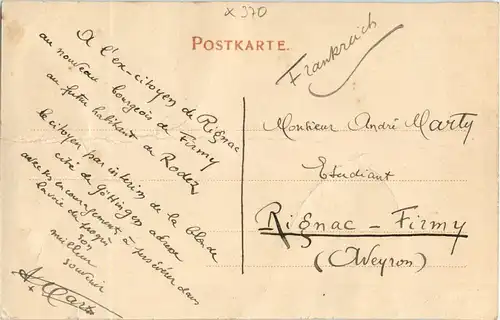 x 370
POSTKARTE.
Frankreich
A l'ex-citoyen de Rignac
au nouveau bourgeois de Firmy
au futur habitant de Rodez
le citoyen par interim de la
cité de Göttingen adresse
avec ses encouragements à persévérer dans
la voie du progrès
son
meilleur
souvenir
A Marty
Monsieur André Marty
Etudiant
Rignac - Firmy
(Aveyron)